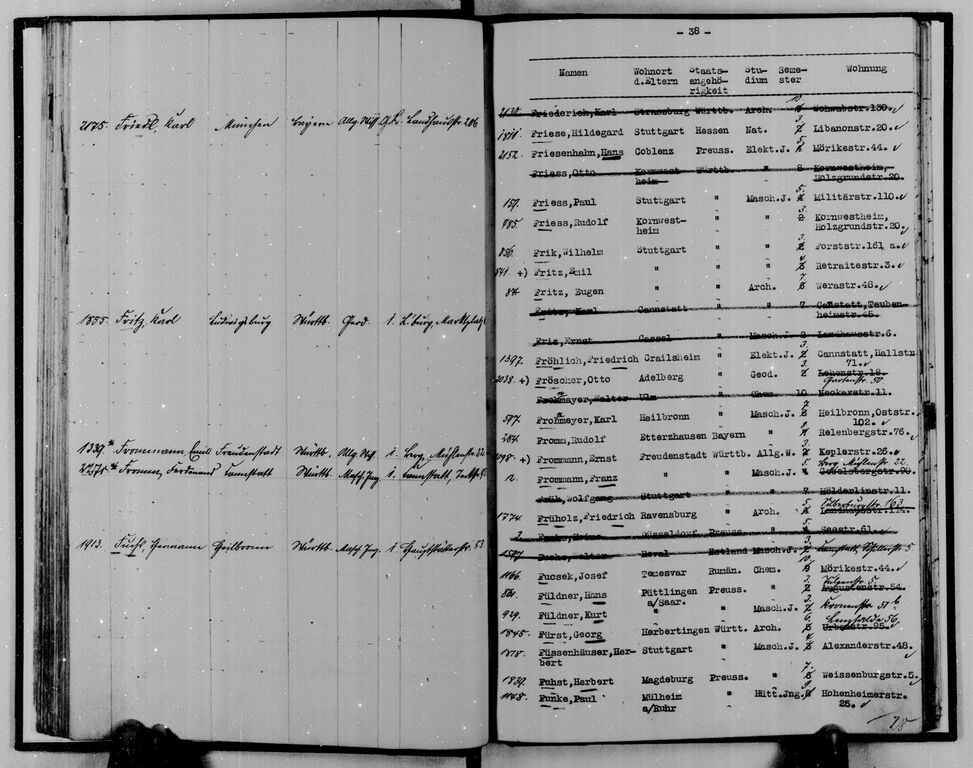 2175. Friedl, Karl München Bayern Allg. Landhausstr. 286
1855. Fritz, Karl Ludwigsburg Württb. Geod. 1. L'burg, Marktplatz
1339. Frommann, Emil Freudenstadt Württb. 1. Berg, Mühlenstr. 32
Fromm, Ferdinand Cannstatt Württb. Masch. Ing. 1. Cannstatt,
1913. Fuchs, Hermann Heilbronn Württb. Masch. Ing. 1. Hauptstätterstr. 53
- 38 -
Namen Wohnort d.Eltern Staats-angehö-rigkeit Stu-dium Seme-ster Wohnung
Friederich,Karl Strassburg Württb. Arch. Schwabstr.130.
Friese,Hildegard Stuttgart Hessen Nat. 3. Libanonstr.20.
2152. Friesenhahn,Hans Coblenz Preuss. Elekt.J. 5. Mörikestr.44.
Friess,Otto Kornwest- Württb. " 8 Kornwestheim,
heim Holzgrundstr.20.
157. Friess,Paul Stuttgart " Masch.J. 5. Militärstr.110.
985. Friess,Rudolf Kornwest- " " 3. Kornwestheim,
heim Holzgrundstr.20.
856. Frik,Wilhelm Stuttgart " " 3. Forststr.161 a.
841 +) Fritz,Emil " " " Retraitestr.3.
84. Fritz, Eugen " " Arch. 7. Werastr.48.
Fritz,Karl Cannstatt " " 7 Canstatt,Tauben-
heimstr.45.
Fris,Ernst Cassel " Masch.J. 2 Landhausstr.6.
1397. Fröhlich,Friedrich Crailsheim " Elekt.J. 3. Cannstatt,Hallstr.
71.
2038. +) Fröscher,Otto Adelberg " Geod. 3. Lehenstr.18.
Gartenstr. 50
Frohmayer,Walter Ulm " Chem. 10 Neckarstr.11.
587. Frohmayer,Karl Heilbronn " Masch.J. 7. Heilbronn,Oststr.
102.
284. Fromm,Rudolf Etterzhausen Bayern " Relenbergstr.76.
+) Frommann,Ernst Freudenstadt Württb. Allg.W. Keplerstr.26.
Berg, Mühlenstr. 32.
2. Frommann,Franz " " Masch.J. 5. Gebelsbergstr.90.
Früh,Wolfgang Stuttgart " " 7 Hölderlinstr.11.
1774. Früholz,Friedrich Ravensburg " Arch. 5. Landhausstr.
Fuchs,Heinz Düsseldorf Preuss. " 5. Seestr.61.
Fuchs,Walter Reval Estland Masch.J. 3.
1166. Fucsek,Josef Temesvar Rumän. Chem. 10. Mörikestr.44.
Füldner,Hans Püttlingen Preuss. " 3. Augustenstr.54.
a/Saar.
929. Füldner,Kurt " " Masch.J. 3. Kronenstr. 51 b
1845. Fürst,Georg Herbertingen Württ. Arch. 6. Urbanstr.95.
1818. Füssenhäuser,Her- Stuttgart " Masch.J. Alexanderstr.48.
bert
1839. Fuhst,Herbert Magdeburg Preuss. " 7. Weissenburgstr.5.
1148. Funke,Paul Mülheim " Hütt.Jng. 9. Hohenheimerstr.
a/Ruhr 25.